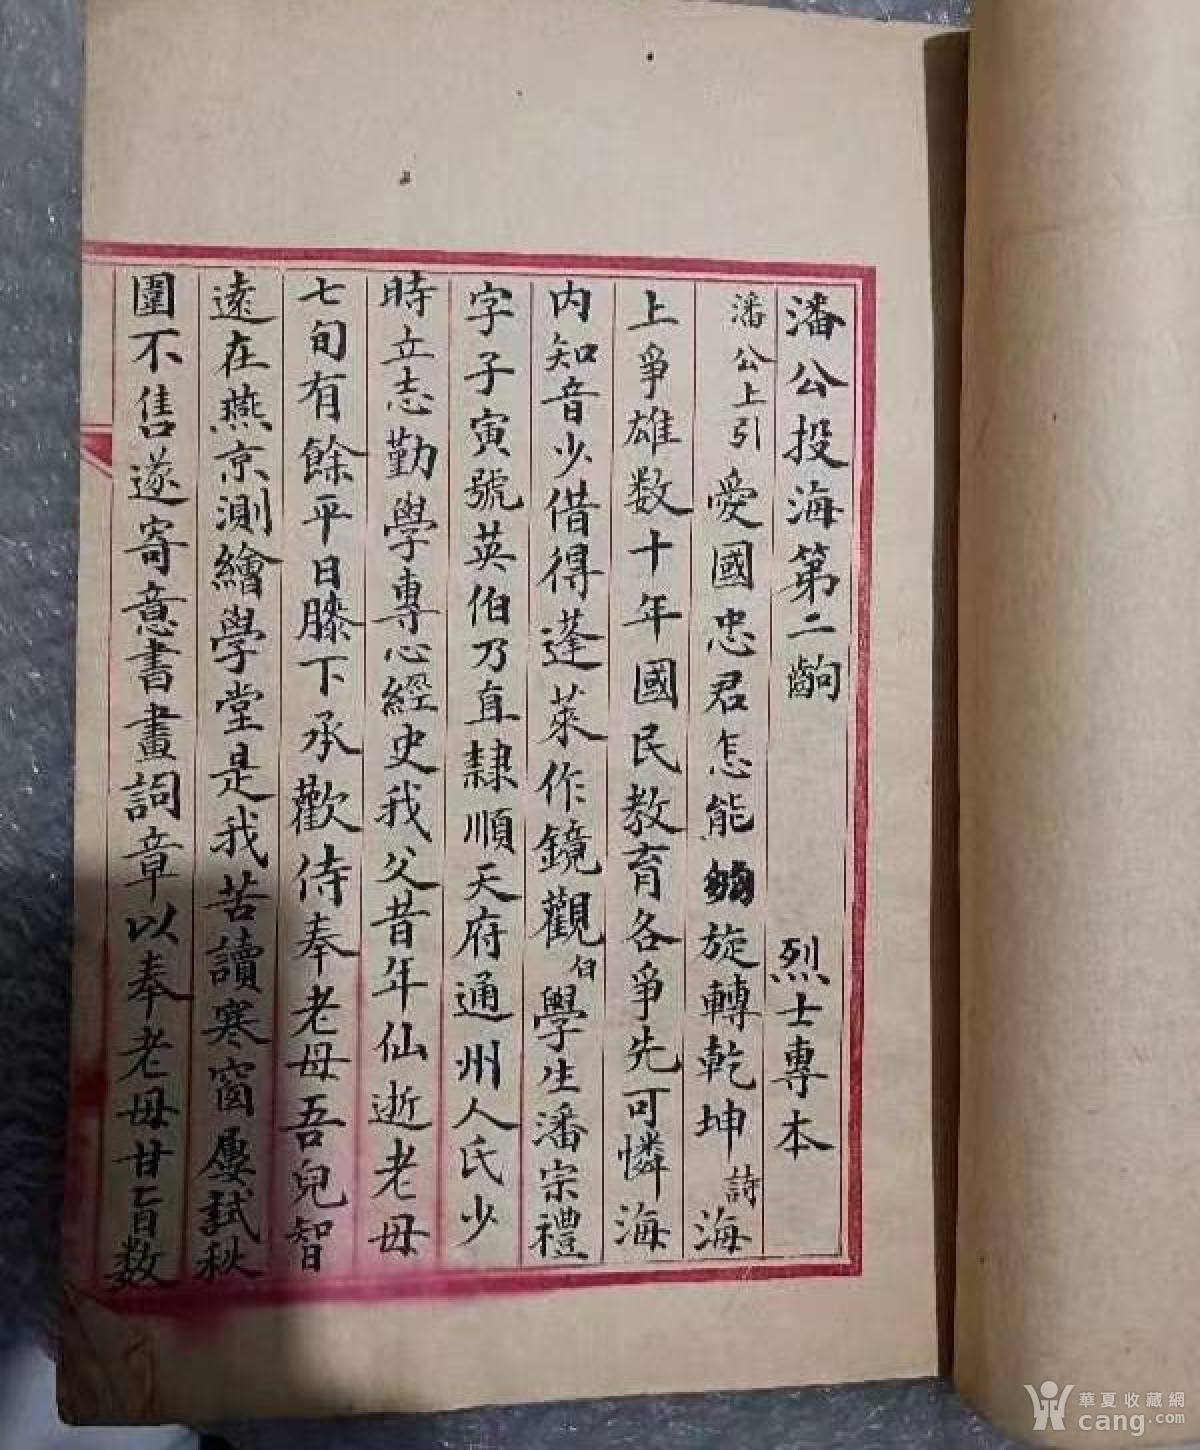 潘公投海第二齣　烈士專本
潘公上引 愛國忠君怎能夠旋轉乾坤 詩 海
上爭雄数十年國民教育各爭先可憐海
内知音少借得蓬萊作鏡觀 白 學生潘宗禮
字子寅號英伯乃直隸順天府通州人氏少
時立志勤學專心經史我父昔年仙逝老母
七旬有餘平日膝下承歡侍奉老母吾兒智
遠在燕京測繪學堂是我苦讀寒窗屢試秋
闈不售遂寄意書畫詞章以奉老母甘旨数
華夏收藏網
cang.com